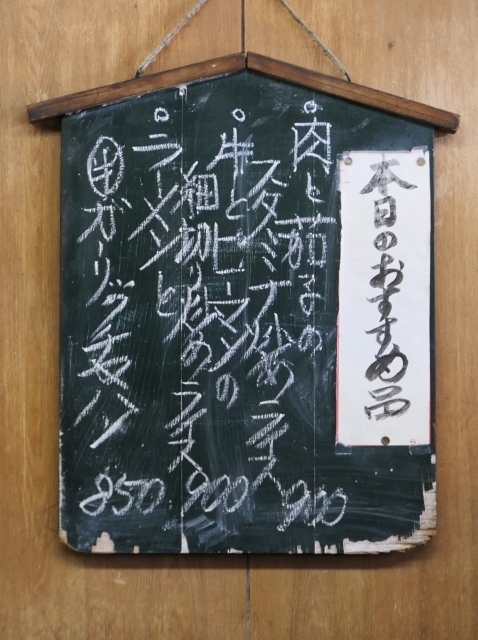 本日のおすすめ品
肉と茄子の
スタミナ炒め ライス
900
牛とピーマンの
細切り炒め ライス
900
ラーメンと
牛ガーリックチャーハン
850